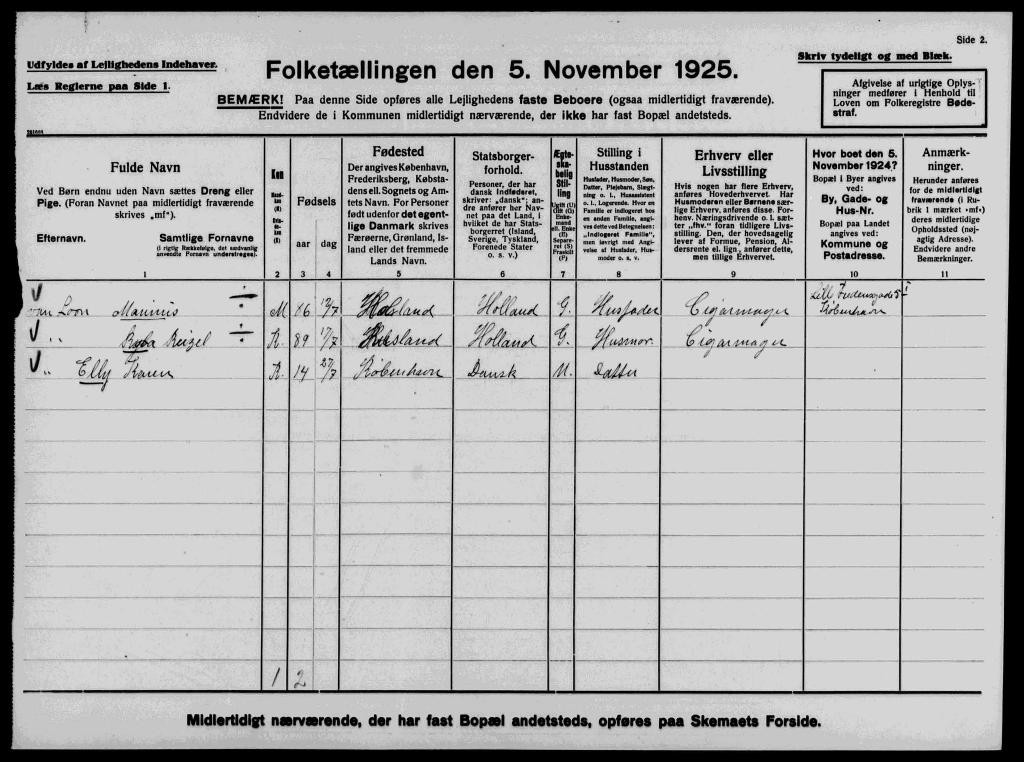 Side 2.
Udfyldes af Lejlighedens Indehaver.
Læs Reglerne paa Side 1.
Folketællingen den 5. November 1925.
Skriv tydeligt og med Blæk.
BEMÆRK! Paa denne Side opføres alle Lejlighedens faste Beboere (ogsaa midlertidigt fraværende).
Endvidere de i Kommunen midlertidigt nærværende, der ikke har fast Bopæl andetsteds.
Afgivelse af urigtige Oplys-
ninger medfører i Henhold til
Loven om Folkeregistre Bøde-
straf.
Fulde Navn
Ved Børn endnu uden Navn sættes Dreng eller
Pige. (Foran Navnet paa midlertidigt fraværende
skrives „mf“).
Efternavn.
Samtlige Fornavne
(i rigtig Rækkefølge, det sædvanlig
anvendte Fornavn understreges).
1
Køn
Mand-
køn
(M)
Kvin-
de-
køn
(K)
2
Fødsels
aar
dag
3
4
Fødested
Der angives København,
Frederiksberg, Købsta-
dens ell. Sognets og Am-
tets Navn. For Personer
født udenfor det egent-
lige Danmark skrives
Færøerne, Grønland, Is-
land eller det fremmede
Lands Navn.
5
Statsborger-
forhold.
Personer, der har
dansk Indfødsret,
skriver: „dansk“; an-
dre anfører her Nav-
net paa det Land, i
hvilket de har Stats-
borgerret (Island,
Sverige, Tyskland,
Forenede Stater
o. s. v.)
6
Ægte-
ska-
belig
Stil-
ling
Ugift (U)
Gift (G)
Enke-
mand
ell. Enke
(E)
Separe-
ret (S)
Fraskilt
(F)
7
Stilling i
Husstanden
Husfader, Husmoder, Søn,
Datter, Plejebarn, Slægt-
ning o. l., Husassistent
o. l., Logerende. Hvor en
Familie er indlogeret hos
en anden Familie, angi-
ves dette ved Betegnelsen:
„Indlogeret Familie“,
men iøvrigt med Angi-
velse af Husfader, Hus-
moder o. s. v.
8
Erhverv eller
Livsstilling
Hvis nogen har flere Erhverv,
anføres Hovederhvervet. Har
Husmoderen eller Børnene sær-
lige Erhverv, anføres disse. For-
henv. Næringsdrivende o. l. sæt-
ter „fhv.“ foran tidligere Livs-
stilling. Den, der hovedsagelig
lever af Formue, Pension, Al-
dersrente el. lign., anfører dette,
men tillige Erhvervet.
9
Hvor boet den 5.
November 1924?
Bopæl i Byer angives
ved:
By, Gade- og
Hus-Nr.
Bopæl paa Landet
angives ved:
Kommune og
Postadresse.
10
Anmærk-
ninger.
Herunder anføres
for de midlertidigt
fraværende (i Ru-
brik 1 mærket »mf«)
deres midlertidige
Opholdssted (nøj-
agtig Adresse).
Endvidere andre
Bemærkninger.
11
van Loon M. 86 12/7 Holland Holland G. Husfader Cigarmager København
" Reizel K. 89 17/7 Holland G. Husmor. Cigarmager
" Elly Karen K. 14 27/7 København Dansk U. Datter
1 2
Midlertidigt nærværende, der har fast Bopæl andetsteds, opføres paa Skemaets Forside.